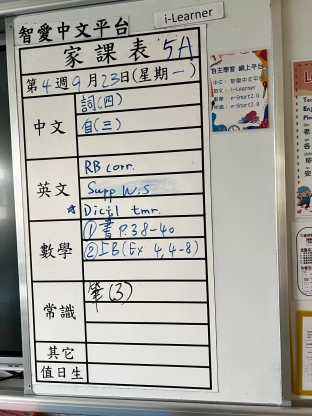 i-Learner
智愛中文平台
家課表 5A
第4週9月23日(星期一)
中文 詞(四)
自(三)
英文 RB corr.
Supp W.S
☆ Dict1 tmr.
數學 ①書 P.38-40
②IB(Ex 4,4-8)
常識 筆(3)
其它
值日生
自主學習 網上平台
中文: 智愛中文平台
英文: i-Learner
數學: e-Smart2.0
常識: e-Smart2.0